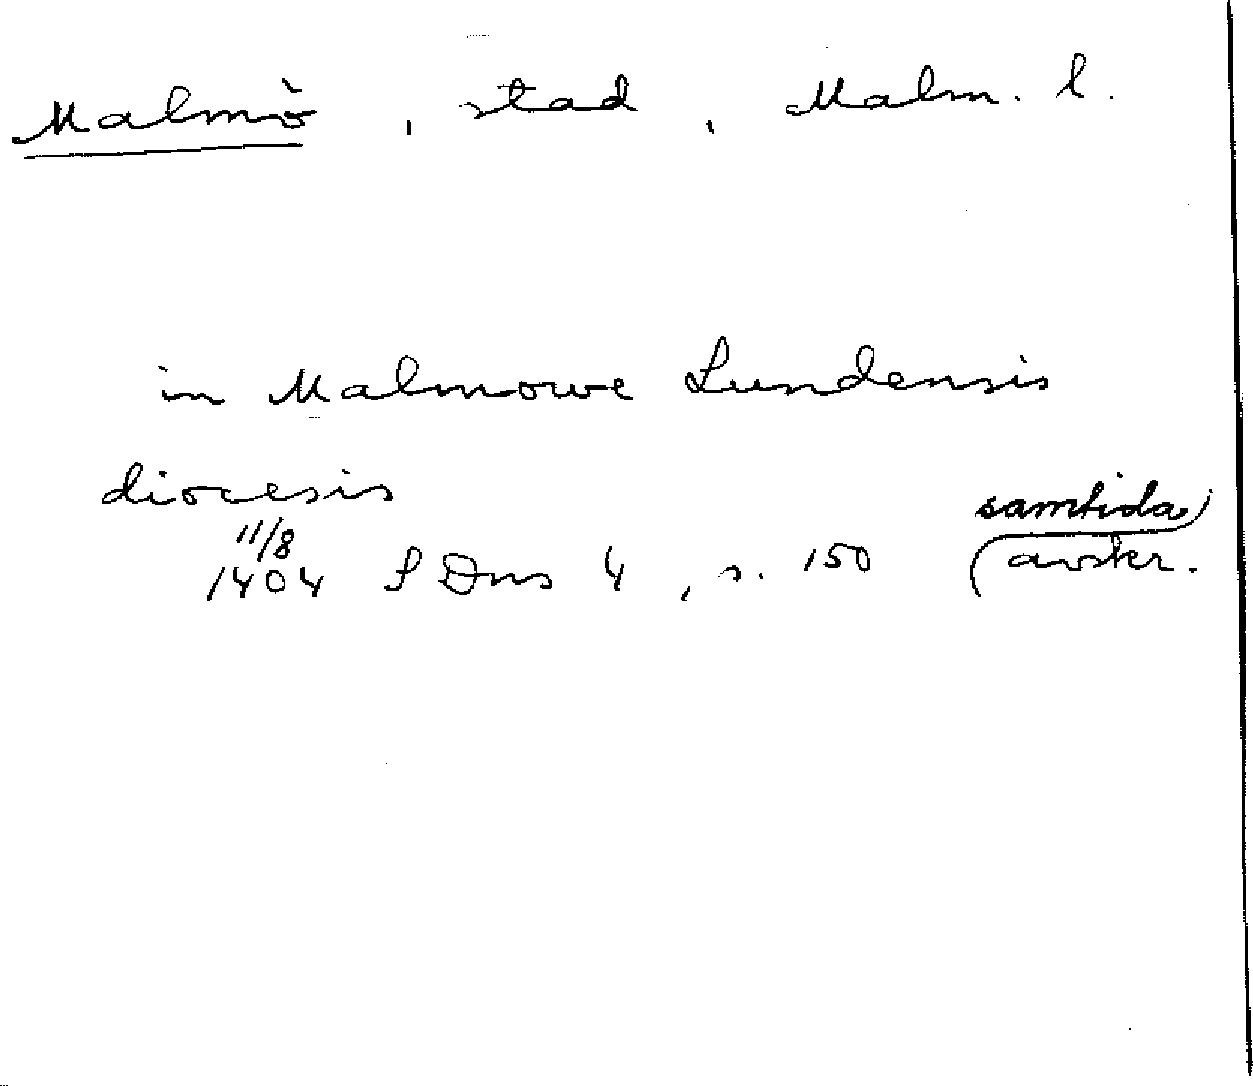 Malmö, stad, Malm. l.
in Malmowe Lundensis
diocesis
samtida
11/8
1404 S Dns 4, s. 150 (avskr.